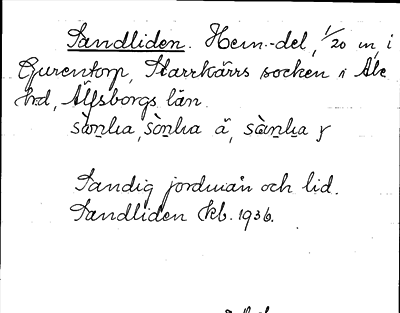 Sandliden. Hem.-del, 1/20 m, i
Gurentorp, Starrkärrs socken i Ale
hd, Älfsborgs län.
sàn̲lıa, sòn̲lıa ä, sàn̲lıa y
Sandig jordmån och lid.
Sandliden kb. 1936.